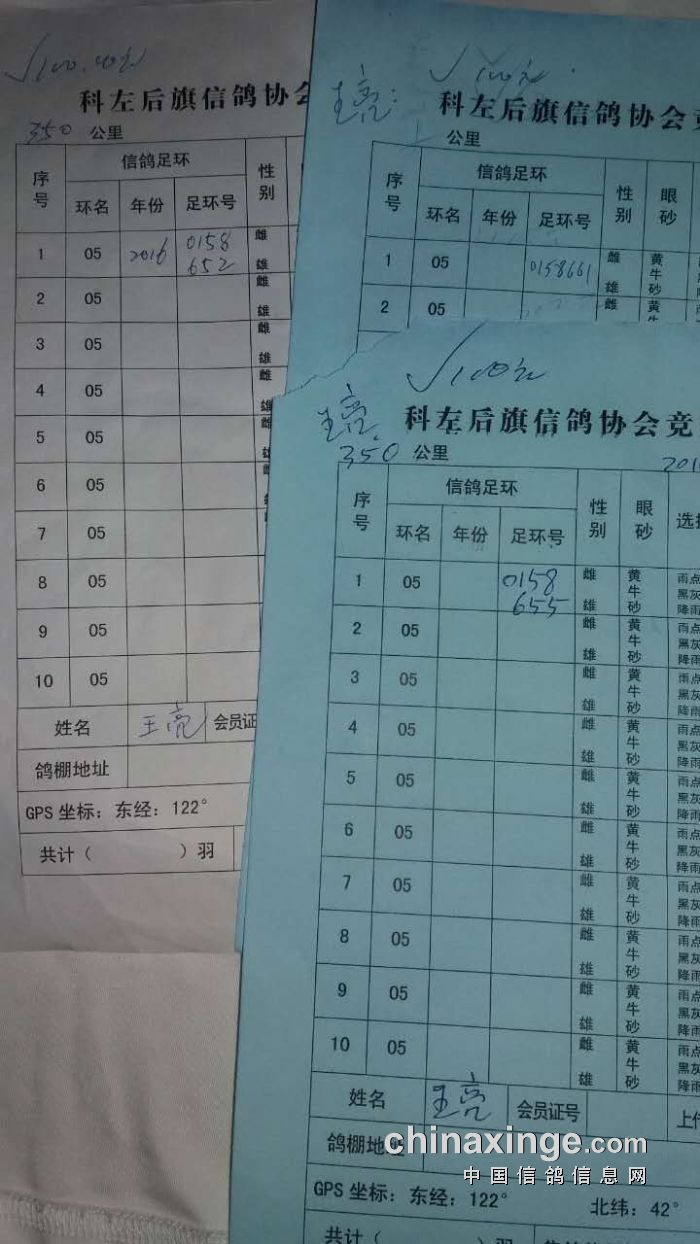 √100.00元
科左后旗信鸽协会
350 公里
序号 信鸽足环 性别
环名 年份 足环号
1 05 2016 0158652 雌雄
2 05 雌雄
3 05 雌雄
4 05 雌雄
5 05 雌
6 05
7 05
8 05
9 05
10 05
姓名 王亮 会员证
鸽棚地址
GPS 坐标：东经：122°
共计（ ）羽
王亮： √100元
科左后旗信鸽协会
公里
序号 信鸽足环 性别 眼砂
环名 年份 足环号
1 05 0158661 雌雄 黄牛砂
2 05 雌 黄
√100元
王亮 科左后旗信鸽协会竞
350 公里 201
序号 信鸽足环 性别 眼砂
环名 年份 足环号
1 05 0158655 雌雄 黄牛砂 雨点 黑灰 降雨
2 05 雌雄 黄牛砂 雨点 黑灰 降雨
3 05 雌雄 黄牛砂 雨点 黑灰 降雨
4 05 雌雄 黄牛砂 雨点 黑灰 降雨
5 05 雌雄 黄牛砂 雨点 黑灰 降雨
6 05 雌雄 黄牛砂 雨点 黑灰 降雨
7 05 雌雄 黄牛砂 雨点 黑灰 降雨
8 05 雌雄 黄牛砂 雨点 黑灰 降雨
9 05 雌雄 黄牛砂 雨点 黑灰 降雨
10 05 雌雄 黄牛砂 雨点 黑灰 降雨
姓名 王亮 会员证号 上
鸽棚地址
chinaxinge.com
中国信鸽信息网
GPS 坐标：东经：122° 北纬：42°
共计（ ）羽